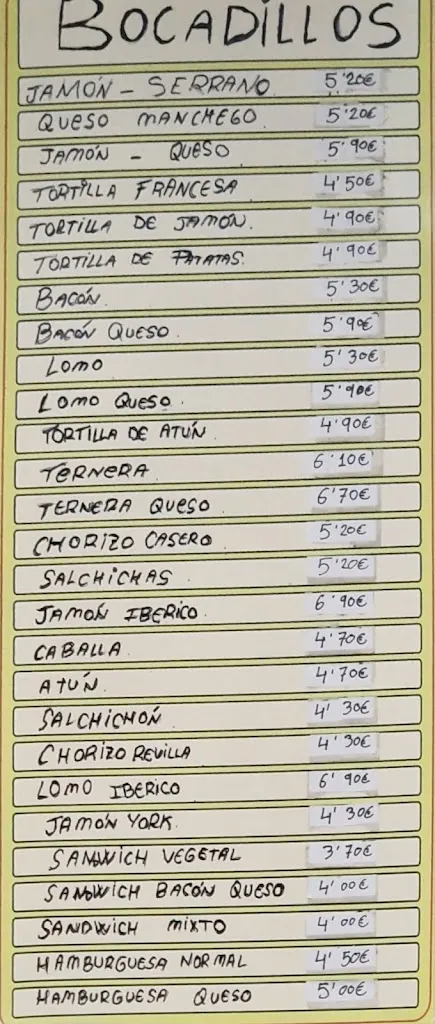 BOCADILLOS
JAMÓN - SERRANO 5'20€
QUESO MANCHEGO 5'20€
JAMÓN - QUESO 5'90€
TORTILLA FRANCESA 4'50€
TORTILLA DE JAMÓN. 4'90€
TORTILLA DE PATATAS. 4'90€
BACÓN. 5'30€
BACÓN QUESO. 5'90€
LOMO 5'30€
LOMO QUESO. 5'90€
TORTILLA DE ATÚN. 4'90€
TERNERA 6'10€
TERNERA QUESO 6'70€
CHORIZO CASERO 5'20€
SALCHICHAS 5'20€
JAMÓN IBERICO. 6'90€
CABALLA 4'70€
ATÚN. 4'70€
SALCHICHÓN 4'30€
CHORIZO REVILLA 4'30€
LOMO IBERICO 6'90€
JAMÓN YORK. 4'30€
SANWICH VEGETAL 3'70€
SANDWICH BACÓN QUESO 4'00€
SANDWICH MIXTO 4'00€
HAMBURGUESA NORMAL 4'50€
HAMBURGUESA QUESO 5'00€